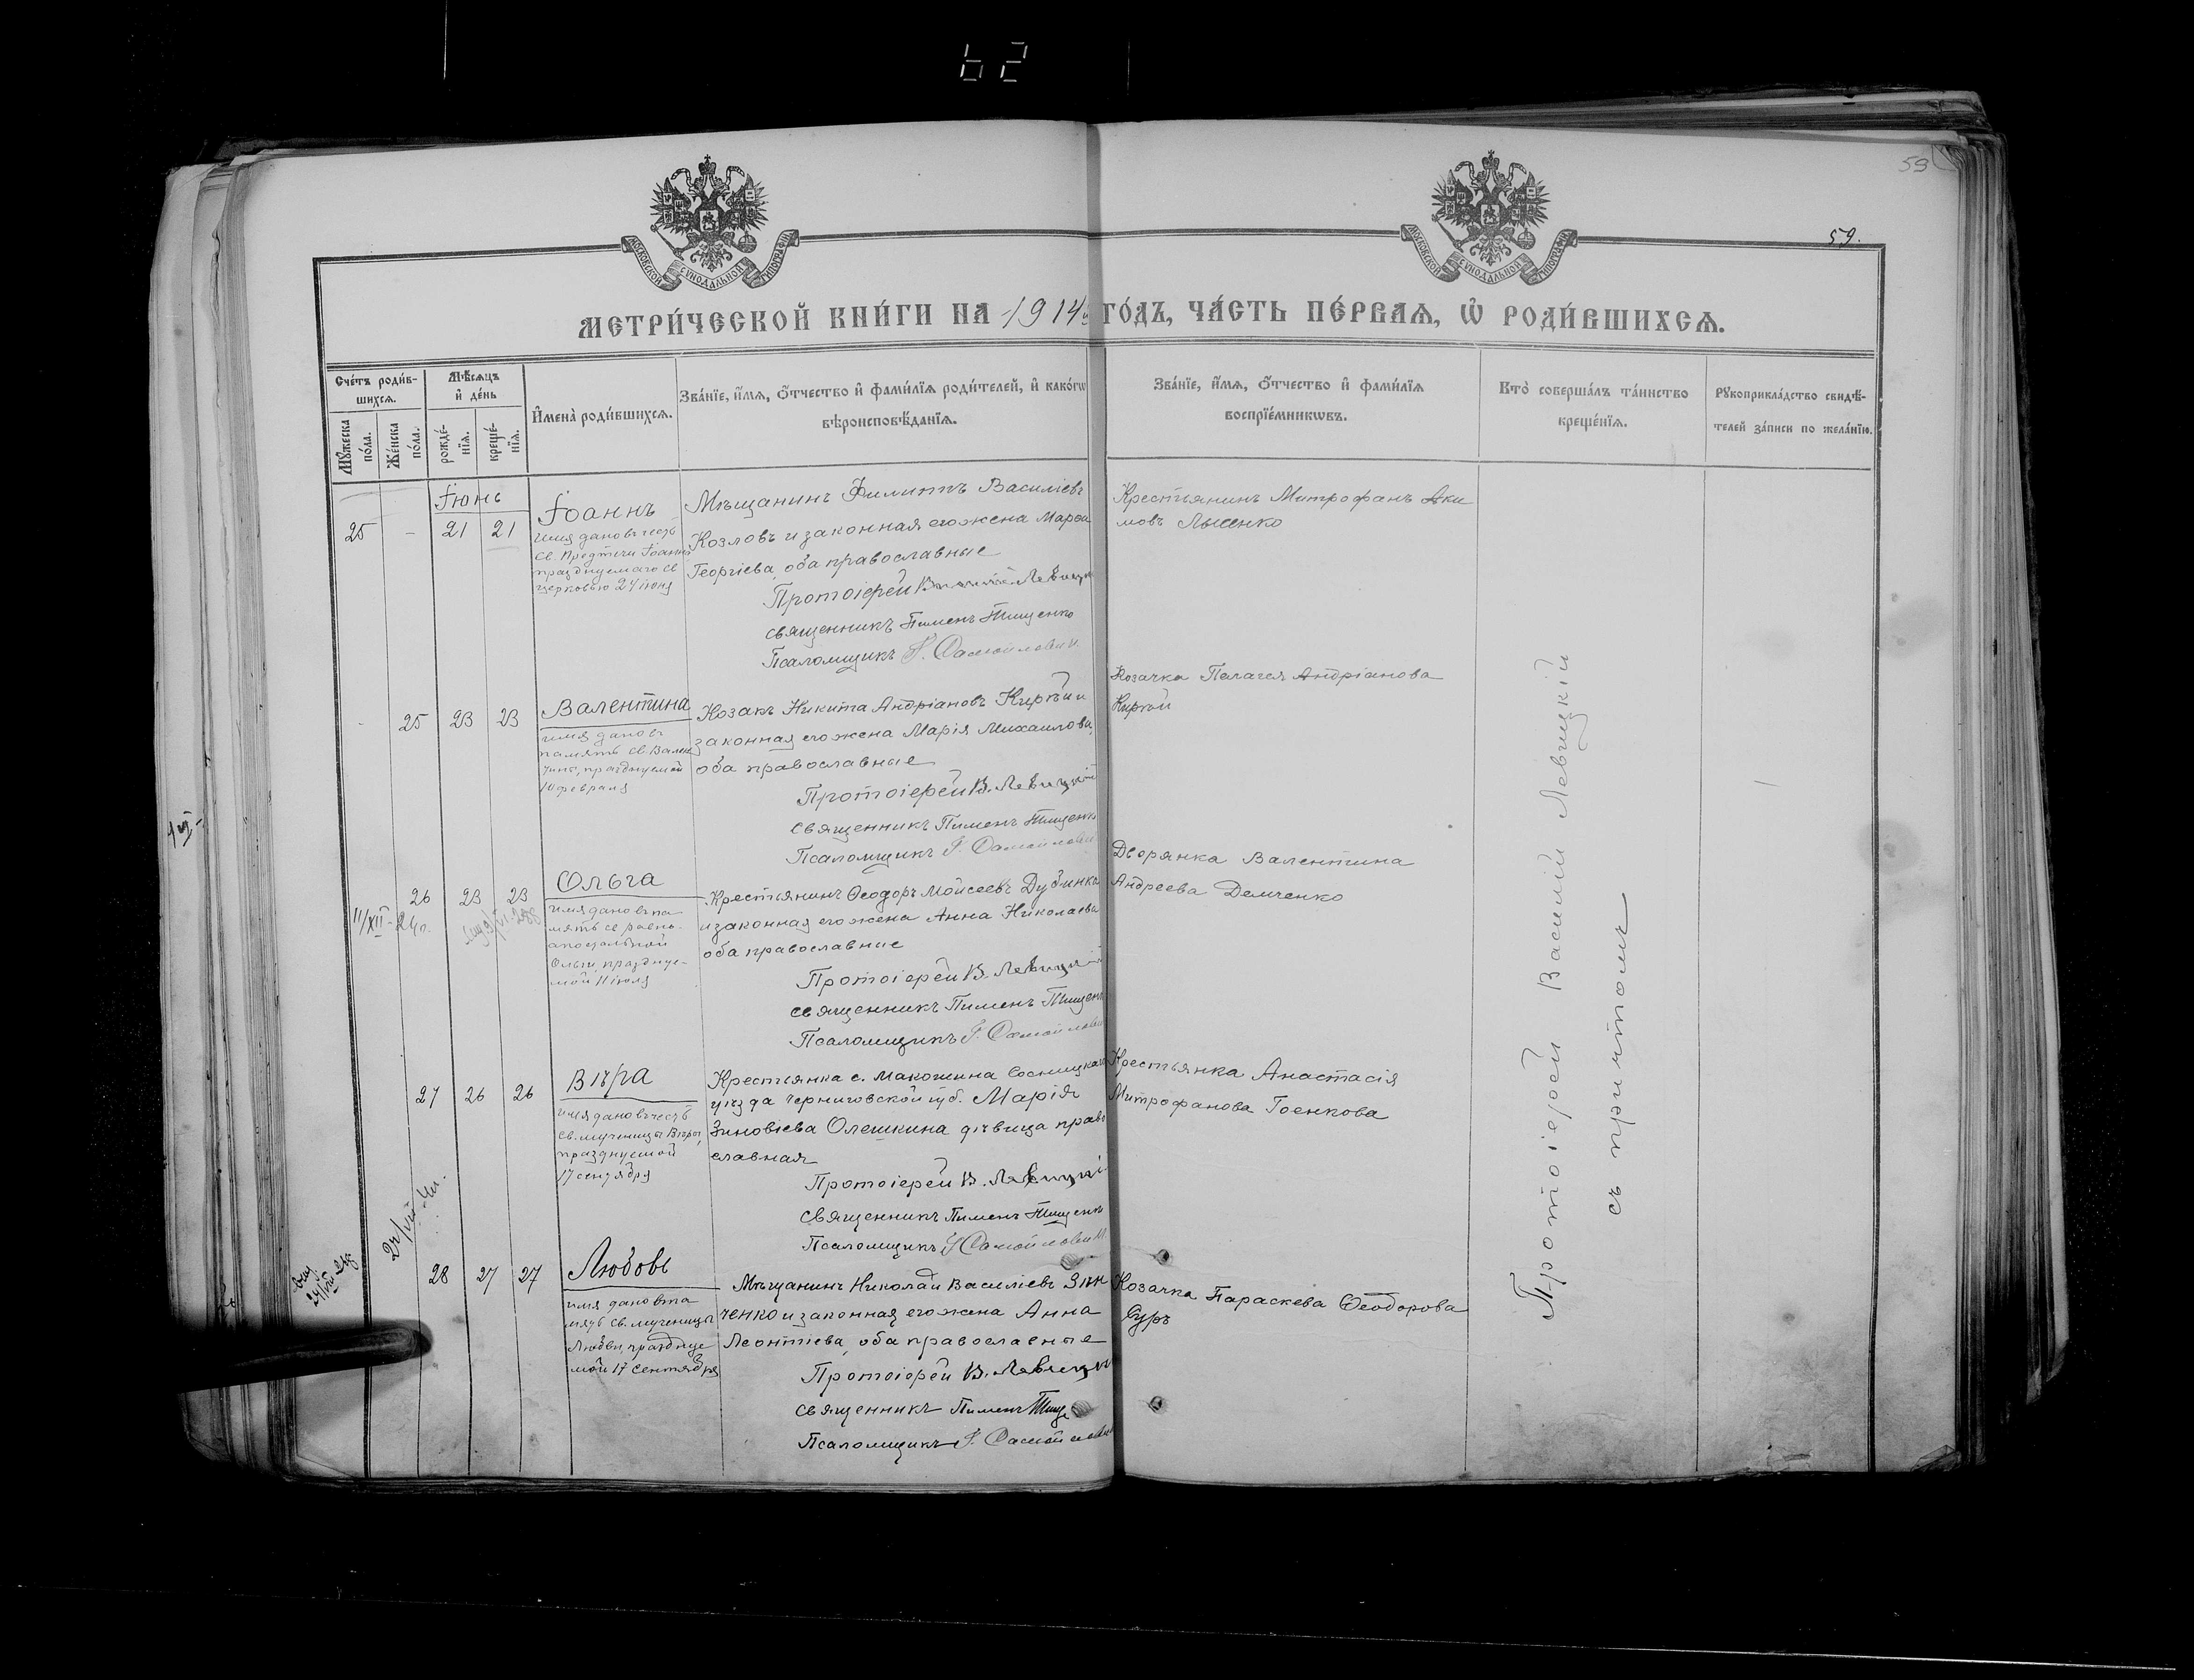 62
59
59.
МОСКОВСКОЙ СѴНОДАЛЬНОЙ ТИПОГРАФІИ
МОСКОВСКОЙ СѴНОДАЛЬНОЙ ТИПОГРАФІИ
МЕТРИ́ЧЕСКОЙ КНИ́ГИ НА 1914й ГО́ДЪ, ЧА́СТЬ ПЕ́РВАѦ, Ѡ҆ РОДИ́ВШИХСѦ.
Сче́тъ роди́в-
шихсѧ.
Мꙋ́жеска по́ла.
Же́нска по́ла.
Мѣ́сѧцъ
и҆ де́нь
рожде́-
нїѧ.
креще́-
нїѧ.
И҆мена̀ роди́вшихсѧ.
Зва́нїе, и҆́мѧ, ѻ҆́тчество и҆ фами́лїѧ роди́телей, и҆ како́гѡ
вѣроисповѣ́данїѧ.
Зва́нїе, и҆́мѧ, ѻ҆́тчество и҆ фами́лїѧ
воспрїе́мникѡвъ.
Кто̀ соверша́лъ та́инство
креще́нїѧ.
Рꙋкоприкла́дство свидѣ́-
телей за́писи по жела́нїю.
Іюнь
25 - 21 21
Іоаннъ
имя дано въ честь
св. Предтечи Іоанна
празднуемаго св
церковью 24 іюня
Мѣщанинъ Филиппъ Василіевъ
Козловъ и законная его жена Марѳа
Георгіева, оба православные
Протоіерей Василій Левицкі
священникъ Пименъ Тищенко
Псаломщикъ Самойлович
Крестьянинъ Митрофанъ Аки
мовъ Лысенко
- 25 23 23
Валентина
имя дано въ
память св. Вален
тины, празднуемой
10 февраля
Козакъ Никита Андріановъ Кирѣй и
законная его жена Марія Михаилова,
оба православные
Протоіерей В. Левицкій
священникъ Пименъ Тищенко
Псаломщикъ Самойлович
Козачка Пелагея Андріанова
Кирѣй
26 23 23
11/XII - 24г.
Ольга
имя дано въ па
мять св равно-
апостольной
Ольги, праздну-
мой 11 іюля
Крестьянинъ Ѳеодоръ Моисеевъ Дубинка
и законная его жена Анна Николаева
оба православные
Протоіерей В. Левицкій
священникъ Пименъ Тищен
Псаломщикъ Самойлович
Дворянка Валентина
Андреева Демченко
27 26 26
Вѣра
имя дано въ честь
св. мученицы Вѣры,
празднуемой
17 сентября
Крестьянка с. Макошина Сосницкаго
уѣзда Черниговской губ. Марія
Зиновіева Олешкина дѣвица право
славная
Протоіерей В. Левицкі
священникъ Пименъ Тищенк
Псаломщикъ Самойлович
Крестьянка Анастасія
Митрофанова Гоенкова
28 27 27
Любовь
имя дано въ па
мять св. мученицы
Любви, праздпуе
мой 17 сентября
Мѣщанинъ Николай Василіевъ Зѣн
ченко и законная его жена Анна
Леонтіева, оба православные
Протоіерей В. Левицк
священникъ Пименъ Тище
Псаломщикъ Самойлович
Козачка Параскева Ѳеодорова
Суръ
Протоіерей Василій Левицкій
съ причтомъ